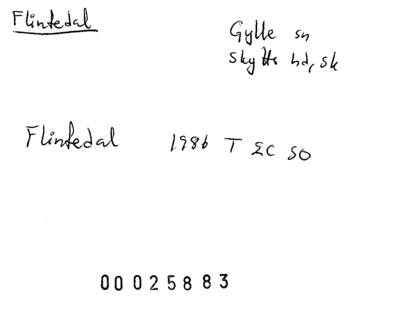 Flintedal
Gylle sn
Skytts hd, Sk
Flintedal 1986 T EC SO
00025883